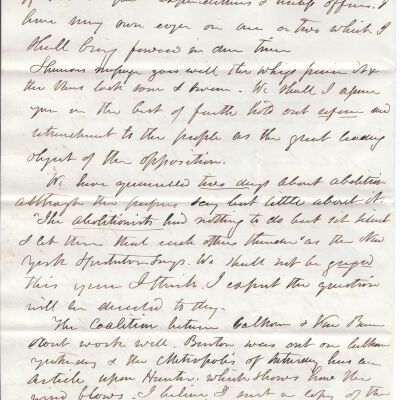 of expenditures & useless offices. I
have my own eyes on one or two which I
shall bring forward in due time
message goes well the whig press it &
the Vans look sour & swear. We shall I agree
you on the best of faith hold out reform and
retrenchment to the people as the great leading
object of the opposition.
We have quarrelled two days about abolition
although the papers say but little about it.
"The abolitionists had nothing to do but sit silent
& let them steal each others thunder" as the New
York Spectator says. We shall not be gagged
this year I think. I expect the question
will be decided to day.
The Coalition between Calhoun & Van Buren
dont work well. Benton was out on Calhoun
yesterday & the Metropolis of Saturday has an
article upon Hunter which shows how the
wind blows. I believe I sent a copy of the